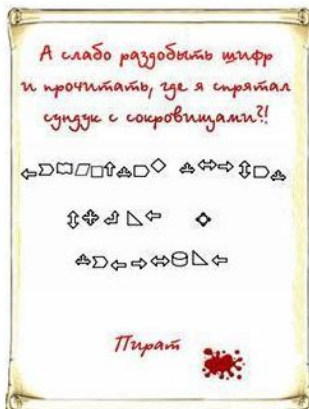 А слабо раздобыть шифр
и прочитать, где я спрятал
сундук с сокровищами?!
Пират